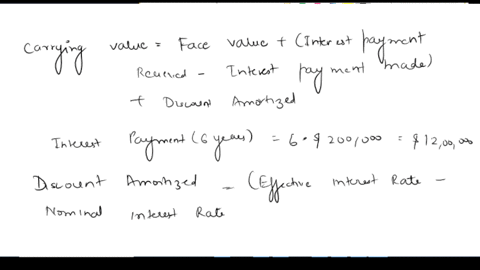 Carrying value = Face value + (Interest payment
Received - Interest payment made)
+ Discount Amortized
Interest Payment (6 years) = 6 * $ 200,000 = $ 12,00,000
Discount Amortized = (Effective interest Rate -
Nominal interest Rate